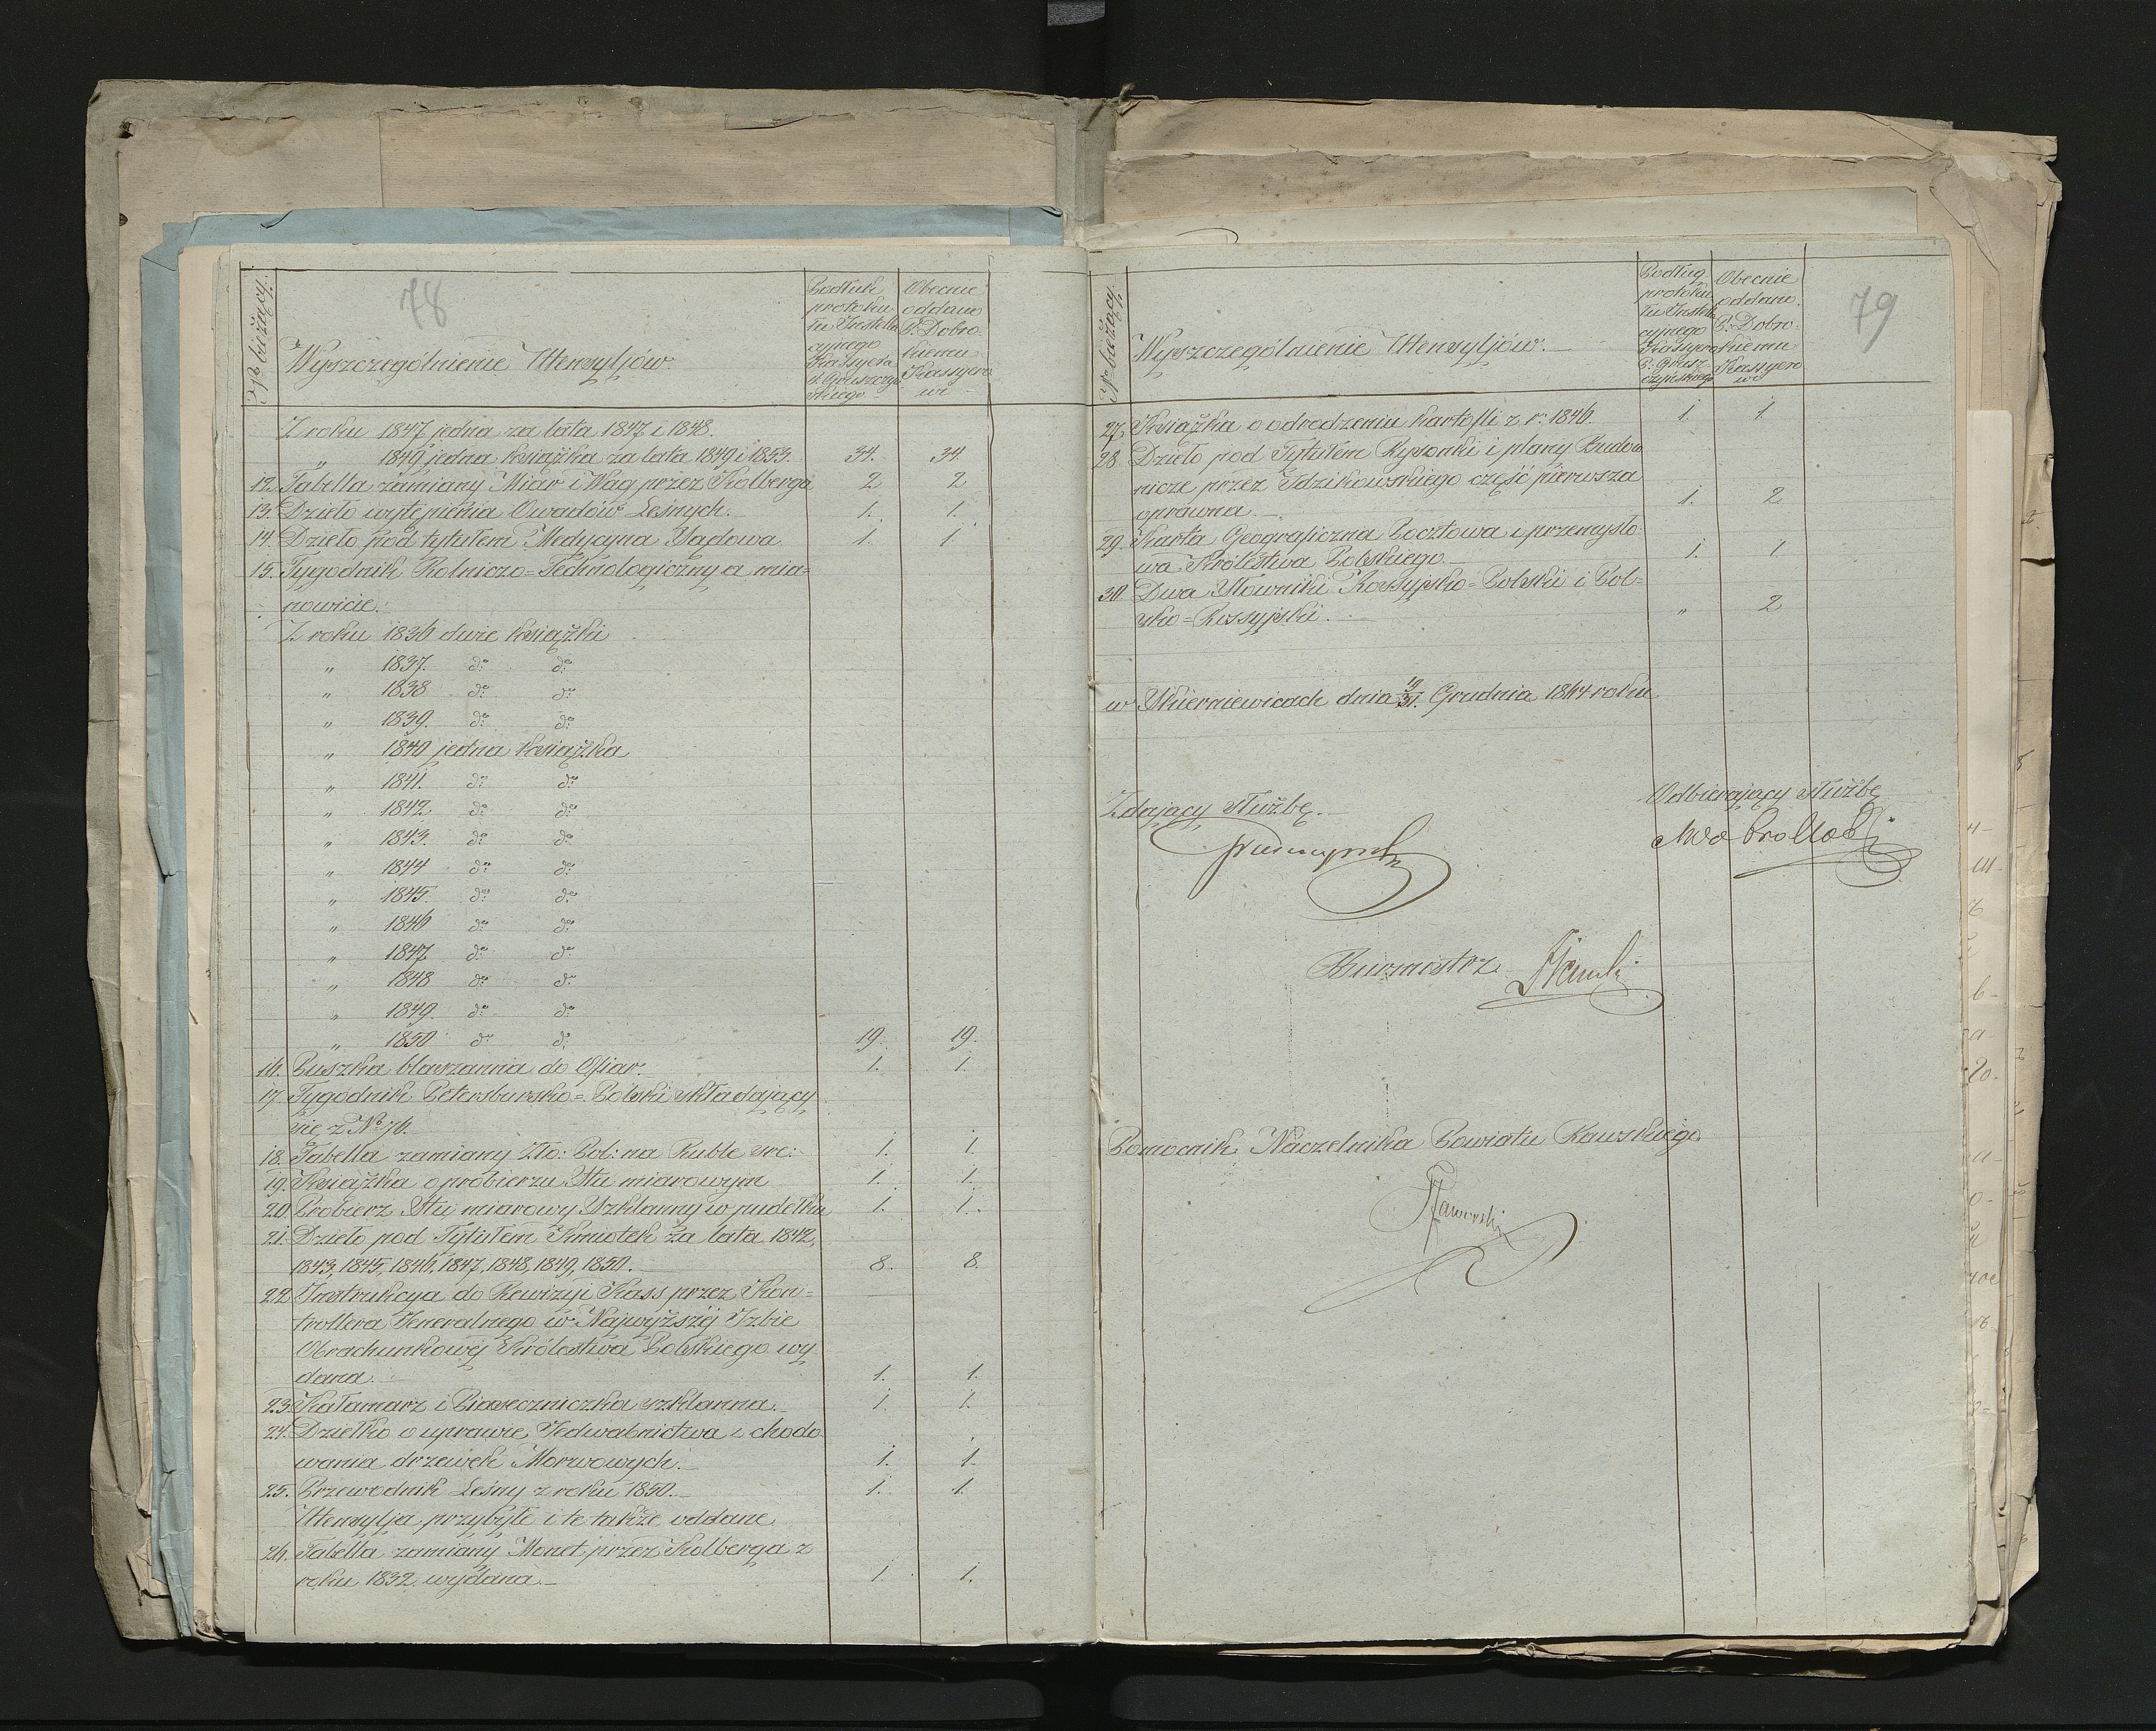 78
No bieżący.
Wyszczególnienie Utensyljów.
Podług
protoku
łu Instella
cyjnego
Kassyera
P. Gruszczyń
skiego
Obecnie
oddano
P. Dobro
skiemu
Kassyero
wi
Z roku 1847 jedna za lata 1847 i 1848.
„ 1849 jedna książka za lata 1849 i 1853. 34. 34.
12. Tabella zamiany Miar i Wag przez Kolberga 2 2
13. Dzieło wytępienia Owadów Leśnych. 1. 1.
14. Dzieło pod tytułem Medycyna Sądowa. 1. 1
15. Tygodnik Rolniczo=Technologiczny a mia=
nowicie.
Z roku 1836 dwie książki
„ 1837. do do
„ 1838 do do
„ 1839. do do
„ 1840 jedna książka
„ 1841. do do
„ 1842. do do
„ 1843. do do
„ 1844 do do
„ 1845. do do
„ 1846 do do
„ 1847 do do
„ 1848 do do
„ 1849. do do
„ 1850 do do 19. 19.
16. Puszka blaszanna do Ofiar. 1. 1.
17. Tygodnik Petersbursko=Polski składający
się z No 76.
18. Tabella zamiany Zło: Pol: na Ruble sre: 1. 1.
19. Książka o probierzu Stu miarowym 1. 1.
20 Probierz Stu miarowy Szklanny w pudełku 1. 1.
21. Dzieło pod Tytułem Kmiotek za lata 1842,
1843, 1845, 1846, 1847, 1848, 1849, 1850. 8. 8.
22 Instrukcya do Rewizyi Kass przez Kon=
trollera Jeneralnego w Najwyższej Izbie
Obrachunkowej Królestwa Polskiego wy
dana. 1. 1.
23 Kałamarz i Piaseczniczka szklanna. 1. 1.
24. Dziełko o uprawie Jedwabnictwa i chodo
wania drzewek Morwowych. 1. 1.
25. Przewodnik Leśny z roku 1850. 1. 1.
Utensylja przybyłe i te także oddane.
26. Tabella zamiany Monet przez Kolberga z
roku 1832 wydana. 1. 1.
79
No bieżący.
Wyszczególnienie Utensyljów.
Podług
protoku
łu Instella
cyjnego
Kassyera
P. Grusz
czyńskiego
Obecnie
oddano.
P. Dobro
skiemu
Kassyero
wi
27. Książka o odrodzeniu kartofli z r: 1846. 1. 1.
28 Dzieło pod Tytułem Rysonki i plany Budow
nicze przez Idzikowskiego część pierwsza
oprawna. 1. 2
29. Karta Geograficzna Pocztowa i przemysło
wa Królestwa Polskiego 1. 1
30 Dwa Słowniki Rossyjsko=Polski i Pol=
sko=Rossyjski. „ 2
w Skierniewicach dnia 19/31. Grudnia 1864 roku
Zdający Służbę.
Odbierający Służbę
Burmistrz
Pomocnik Naczelnika Powiatu Rawskiego